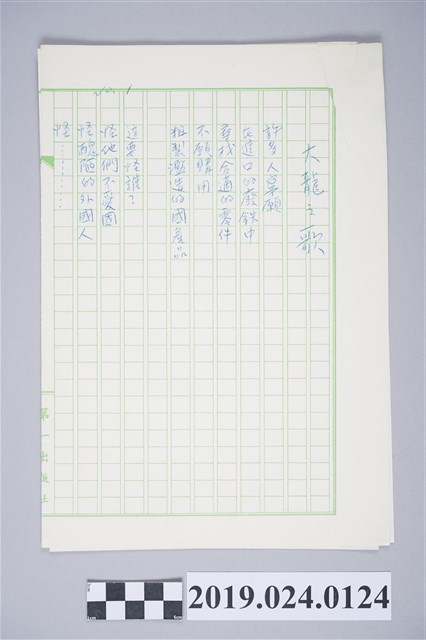 大龍之歌
許多人寧願
在進口的廢鉄中
尋找合適的零件
不願購用
粗製濫造的國產品
這要怪誰？
怪他們不愛國
怪醜陋的外國人
怪………
No. 1
第一出版社
2019.024.0124